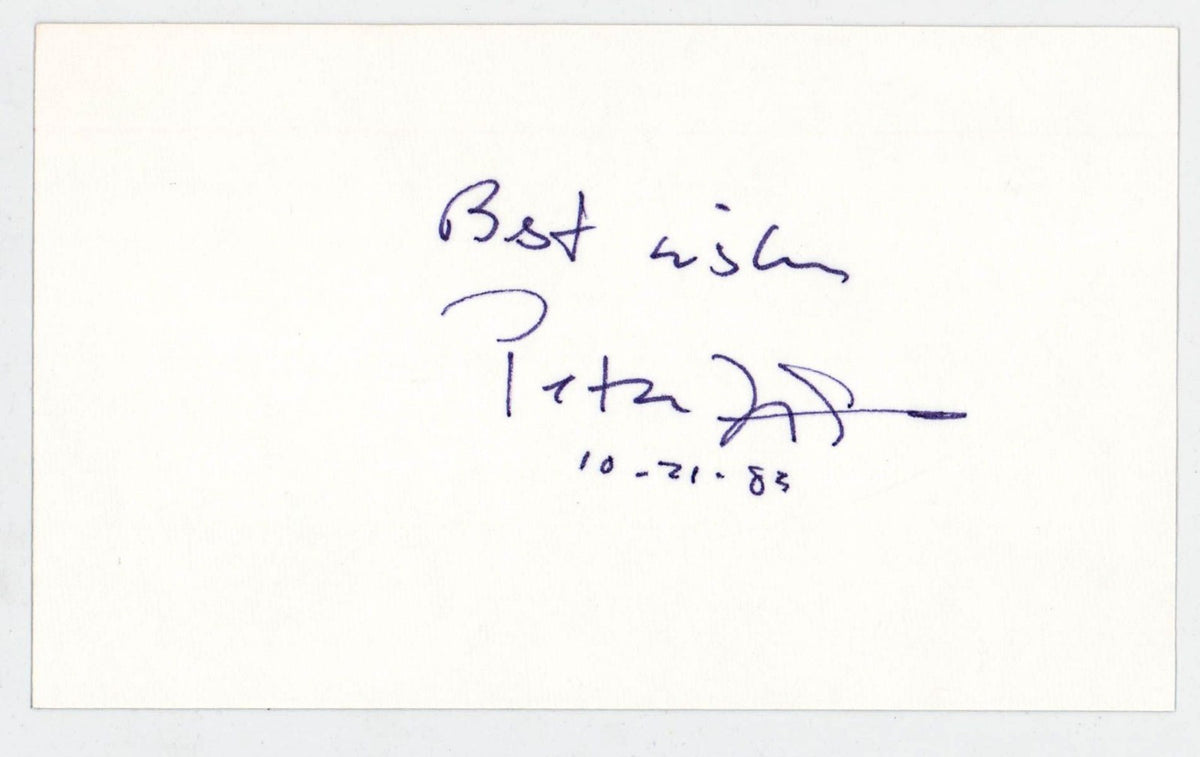 Best wishes
Peter
10-21-83